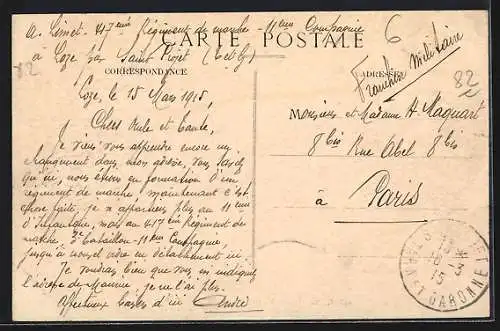 A. Limet - 417ème Régiment de marche - 11ème Compagnie
à Loze par Saint Projet (T et G)
6
CARTE POSTALE
CORRESPONDANCE
ADRESSE
Franchise militaire
82
82
Loze, le 15 Mars 1915,
Chers Oncle et Tante,
Je viens vous apprendre encore un
changement dans mon adresse, vous savez
qu'ici nous étions en formation d'un
régiment de marche, maintenant c'est
chose faite, je n'appartiens plus au 11ème
d'Infanterie, mais au 417ème Régiment de
marche, 11ème Compagnie,
jusqu'à nouvel ordre en détachement ici
Je voudrais bien que vous m'indiquiez
l'adresse de Maurice, je ne l'ai plus.
Affectueux baisers d'ici André
Monsieur et Madame H. Maquart
8 bis Rue Abel 8 bis
à Paris
16 -3
15
GARONNE